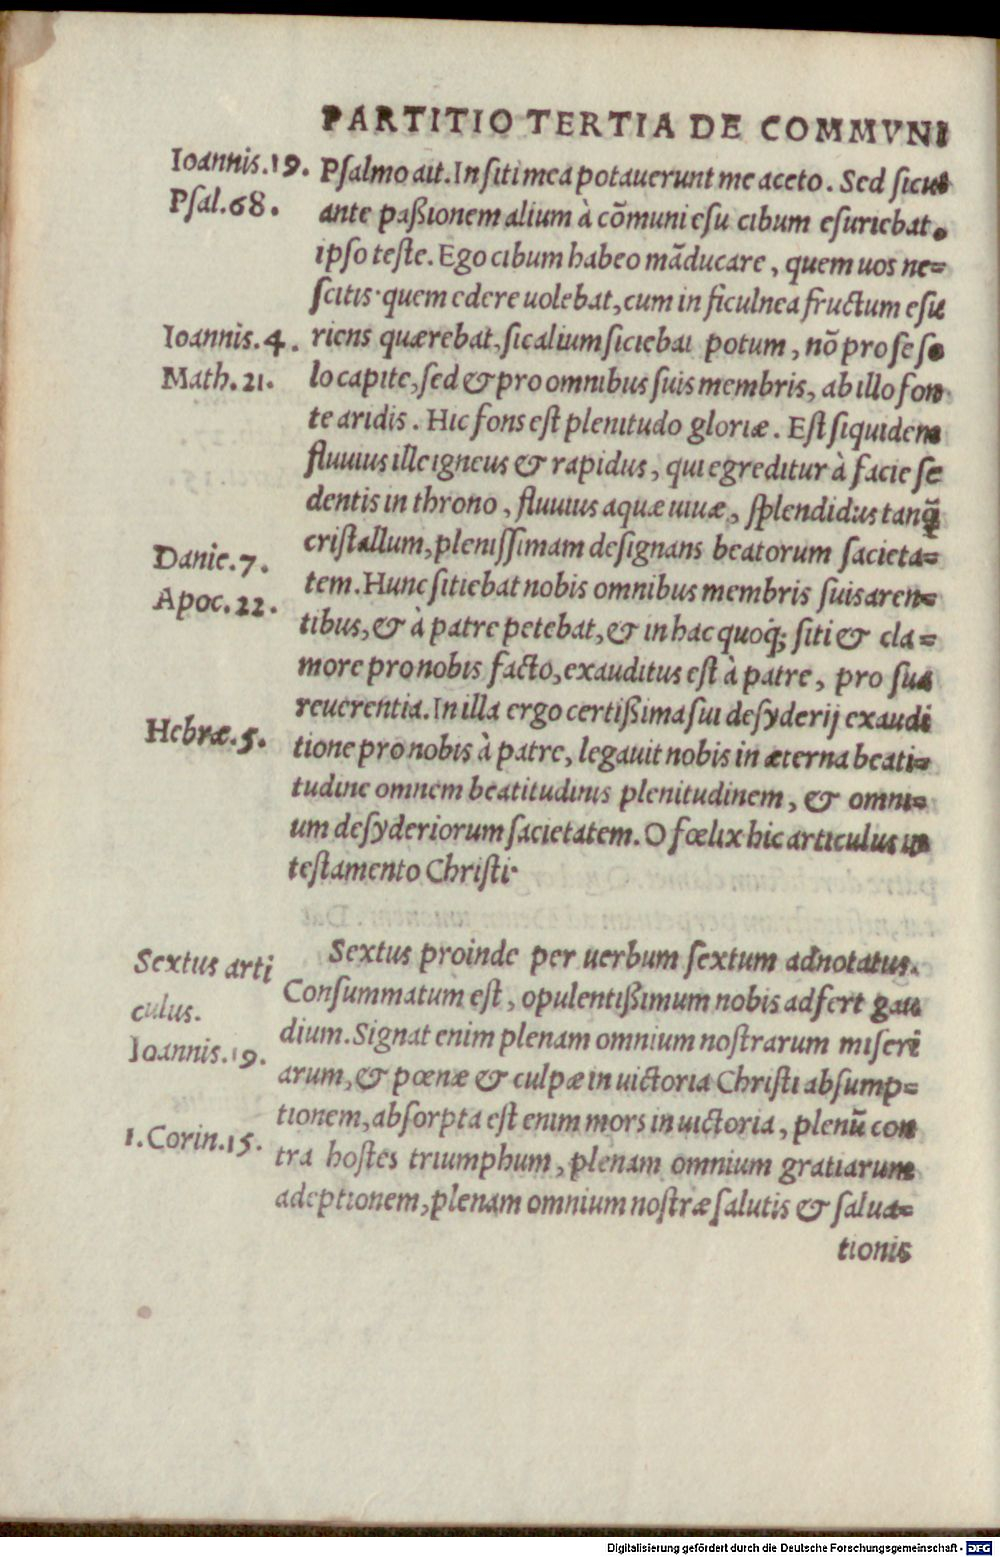 PARTITIO TERTIA DE COMMVNI
Ioannis.19.
Psal.68.
Psalmo ait. In siti mea potauerunt me aceto. Sed sicut
ante paßionem alium à cõmuni esu cibum esuriebat.
ipso teste. Ego cibum habeo mãducare, quem uos ne=
scitis· quem edere uolebat, cum in ficulnea fructum esu
Ioannis.4.
Math.21.
riens quærebat, sic alium sitiebat potum, nõ pro se so
lo capite, sed & pro omnibus suis membris, ab illo fon
te aridis. Hic fons est plenitudo gloriæ. Est siquidem
fluuius ille igneus & rapidus, qui egreditur à facie se
dentis in throno, fluuius aquæ uiuæ, splendidus tanq̃
Danie.7.
Apoc.22.
cristallum, plenissimam designans beatorum sacieta=
tem. Hunc sitiebat nobis omnibus membris suis aren=
tibus, & à patre petebat, & in hac quoq; siti & cla=
more pro nobis facto, exauditus est à patre, pro sua
Hebræ.5.
reuerentia. In illa ergo certißima sui desyderij exaudi
tione pro nobis à patre, legauit nobis in æterna beati=
tudine omnem beatitudinis plenitudinem, & omni=
um desyderiorum sacietatem. O fœlix hic articulus in
testamento Christi·
Sextus arti
culus.
Ioannis.19.
Sextus proinde per uerbum sextum adnotatus.
Consummatum est, opulentißimum nobis adfert gau
dium. Signat enim plenam omnium nostrarum miseri
arum, & pœnæ & culpæ in uictoria Christi absump=
1.Corin.15.
tionem, absorpta est enim mors in uictoria, plenũ con
tra hostes triumphum, plenam omnium gratiarum
adeptionem, plenam omnium nostræ salutis & salua=
tionis
Digitalisierung gefördert durch die Deutsche Forschungsgemeinschaft - DFG